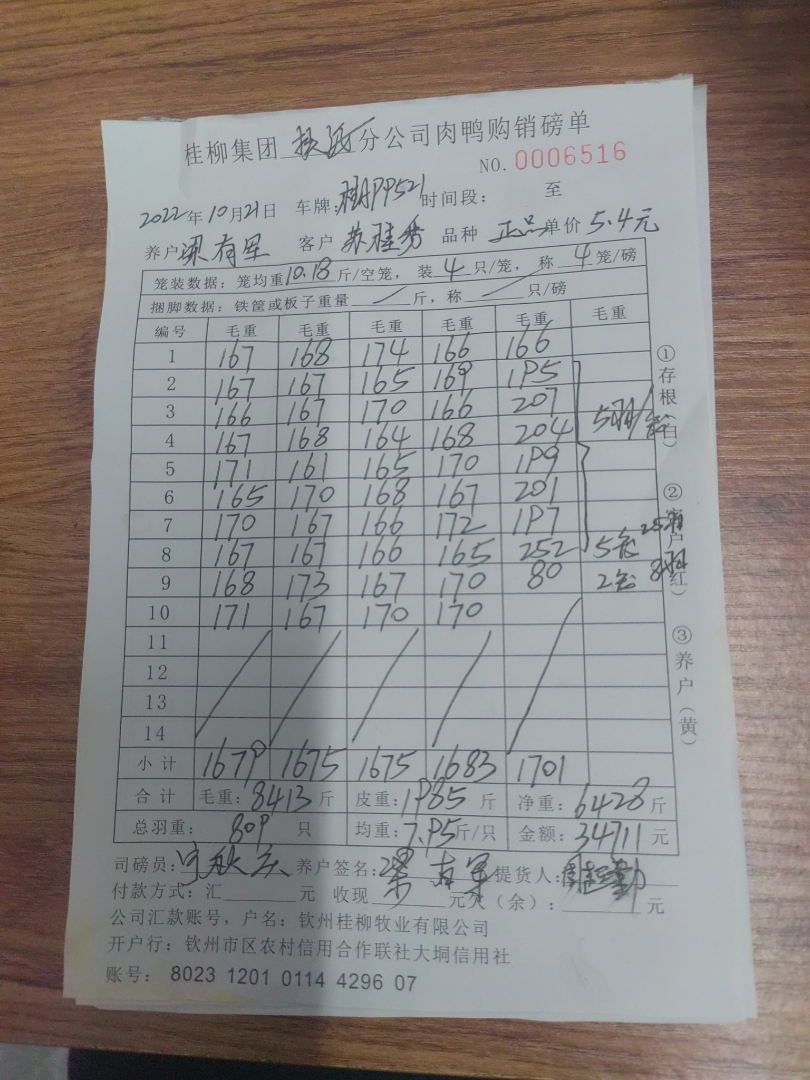 桂柳集团 分公司肉鸭购销磅单
NO. 0006516
2022年10月21日 车牌: 桂APP521 时间段: 至
养户 梁有军 客户 苏桂秀 品种 正品 单价 5.4元
笼装数据: 笼均重10.18斤/空笼, 装4只/笼, 称4笼/磅
捆脚数据: 铁筐或板子重量 / 斤, 称 / 只/磅
编号 毛重 毛重 毛重 毛重 毛重 毛重
1 167 168 174 166 166
2 167 167 165 169 195
3 166 167 170 166 207
4 167 168 164 168 204
5 171 161 165 170 199
6 165 170 168 167 201
7 170 167 166 172 197
8 167 167 166 165 252 5仓
9 168 173 167 170 80 2仓
10 171 167 170 170
11
12
13
14
小计 1679 1675 1675 1683 1701
合计 毛重: 8413斤 皮重: 1985斤 净重: 6428斤
总羽重: 809 只 均重: 7.95斤/只 金额: 34711 元
司磅员: 养户签名: 梁有军 提货人:
付款方式: 汇 元 收现 元欠(余): 元
公司汇款账号, 户名: 钦州桂柳牧业有限公司
开户行: 钦州市区农村信用合作联社大垌信用社
账号: 8023 1201 0114 4296 07
①存根(白)
②客户(红)
③养户(黄)